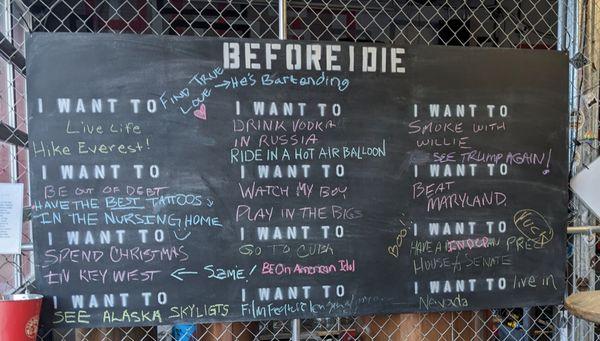 BEFORE I DIE
I WANT TO
FIND TRUE LOVE → He's Bartending
Live Life
Hike Everest!
I WANT TO
BE OUT OF DEBT
HAVE THE BEST TATTOOS
IN THE NURSING HOME
I WANT TO
SPEND CHRISTMAS
IN KEY WEST ← SAME!
I WANT TO
SEE ALASKA SKYLIGTS
I WANT TO
DRINK VODKA
IN RUSSIA
RIDE IN A HOT AIR BALLOON
I WANT TO
WATCH MY BOY
PLAY IN THE BIGS
I WANT TO
GO TO CUBA
BE On American Idol
I WANT TO
Film
I WANT TO
SMOKE WITH
WILLIE
SEE TRUMP AGAIN!
I WANT TO
BEAT
MARYLAND.
I WANT TO
BOO!!
HAVE A INDEP. PREZ
HOUSE & SENATE
I WANT TO live in
Nevada